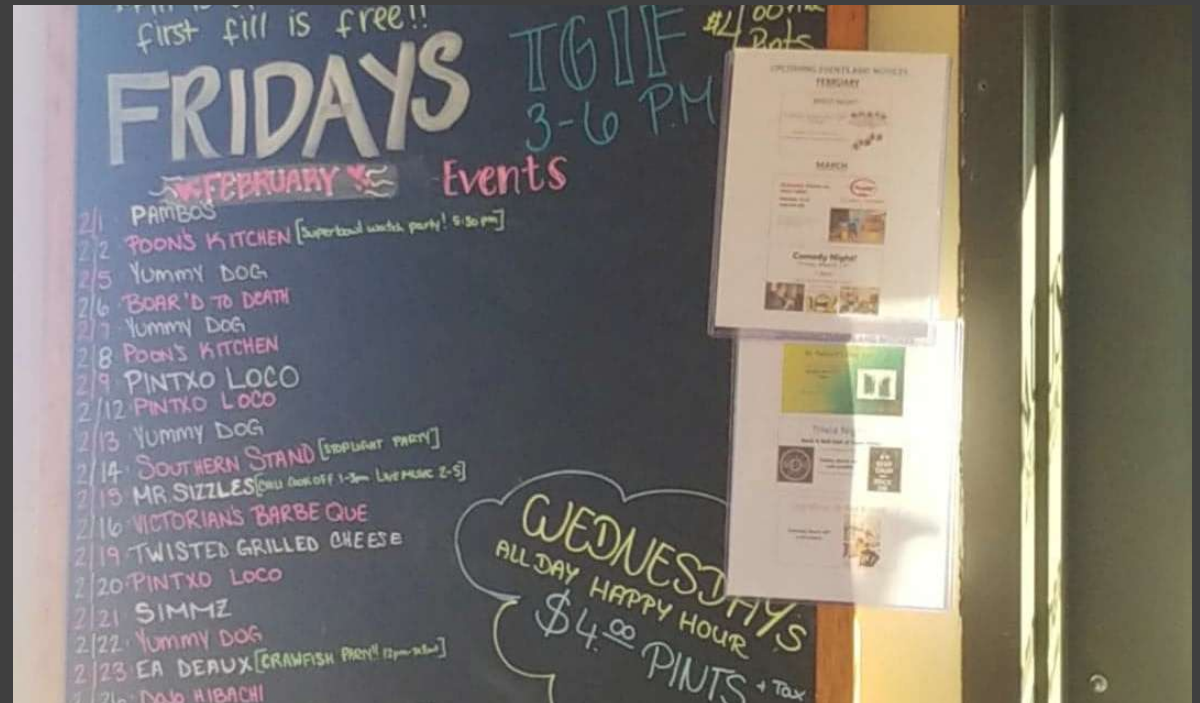 first fill is free!!
FRIDAYS
TGIF
3-6 P.M
$4
Pints
FEBRUARY Events
2/1 PAMBO'S
2/2 POON'S KITCHEN [Superbowl watch party! 5:30 pm]
2/5 Yummy DOG
2/6 BOAR'D TO DEATH
2/7 Yummy DOG
2/8 POON'S KITCHEN
2/9 PINTXO LOCO
2/12 PINTXO LOCO
2/13 Yummy DOG
2/14 SOUTHERN STAND [STOPLIGHT PARTY]
2/15 MR.SIZZLES [CHILI COOK OFF 1-3pm LIVE MUSIC 2-5]
2/16 VICTORIAN'S BARBEQUE
2/19 TWISTED GRILLED CHEESE
2/20 PINTXO LOCO
2/21 SIMMZ
2/22 Yummy DOG
2/23 EA DEAUX [CRAWFISH PARTY!!
DOJO HIBACHI
WEDNESDAYS
ALL DAY HAPPY HOUR
$4.00 PINTS + Tax
UPCOMING EVENTS AND NOTICES
FEBRUARY
MARCH
Comedy Night!